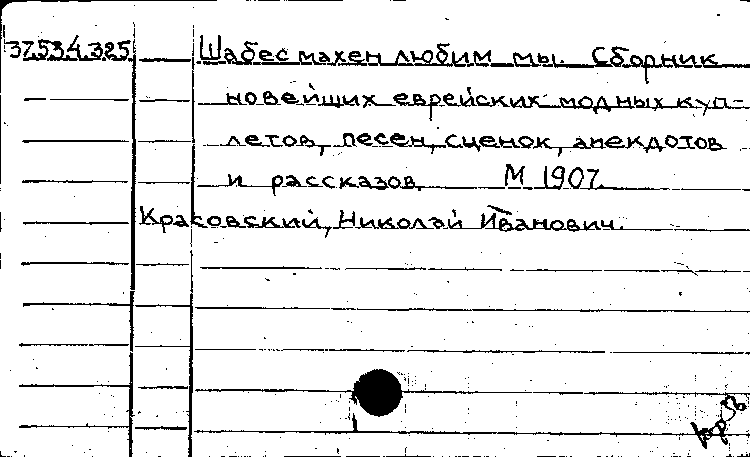 37.534.325 Шабес махен любим мы. Сборник
новейших еврейских модных куп-
летов, песен, сценок, анекдотов
и рассказов. М 1907.
Красовский, Николай Иванович.